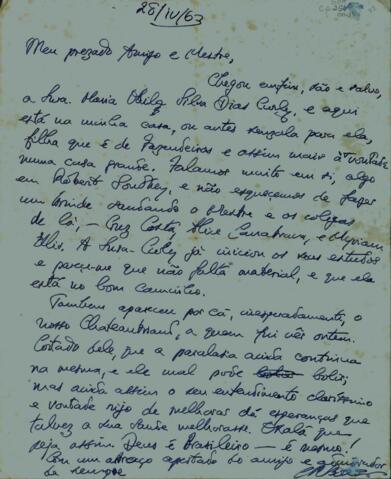 28/IV/63
Meu prezado Amigo e Mestre,
Chegou enfim, sã e salva,
a Sra. Maria Odila Silva Dias Curly, e aqui
está na minha casa, ou antes senzala para ela,
filha que é de fazendeiros e assim mais à vontade
numa casa grande. Falamos muito em si, algo
em Robert Southey, e não esquecemos de fazer
um brinde saudando o Mestre e os colegas
de lá, — Cruz Costa, Alice Canabrava, e Myriam
Ellis. A Sra. Curly já iniciou os seus estudos
e parece-me que não falta material, e que ela
está no bom caminho.
Também apareceu por cá, inesperadamente, o
nosso Chateaubriand, a quem fui vêr ontem.
Coitado dele, que a paralasia ainda continua
na mesma, e ele mal pode bolir;
mas ainda assim o seu entendimento claríssimo
e vontade rijo de melhorar dá esperanças que
talvez a sua saude melhorasse. Oxalá que
seja assim Deus é Brasileiro — é mesmo!
Com um abraço apertado do amigo e admirador
de sempre